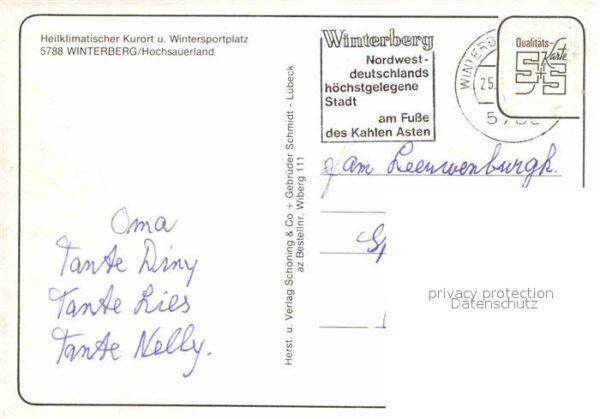 Heilklimatischer Kurort u. Wintersportplatz
5788 WINTERBERG/Hochsauerland
Winterberg
Nordwest-
deutschlands
höchstgelegene
Stadt
am Fuße
des Kahlen Asten
WINTERB
25.
Qualitäts-
Karte
S+S
Herst. u. Verlag Schöning & Co + Gebrüder Schmidt - Lübeck
az Bestellnr. Wiberg 111
fam Leeuwenburgh.
Oma
Tante Diny
Tante Lies
Tante Nelly.
privacy protection
Datenschutz